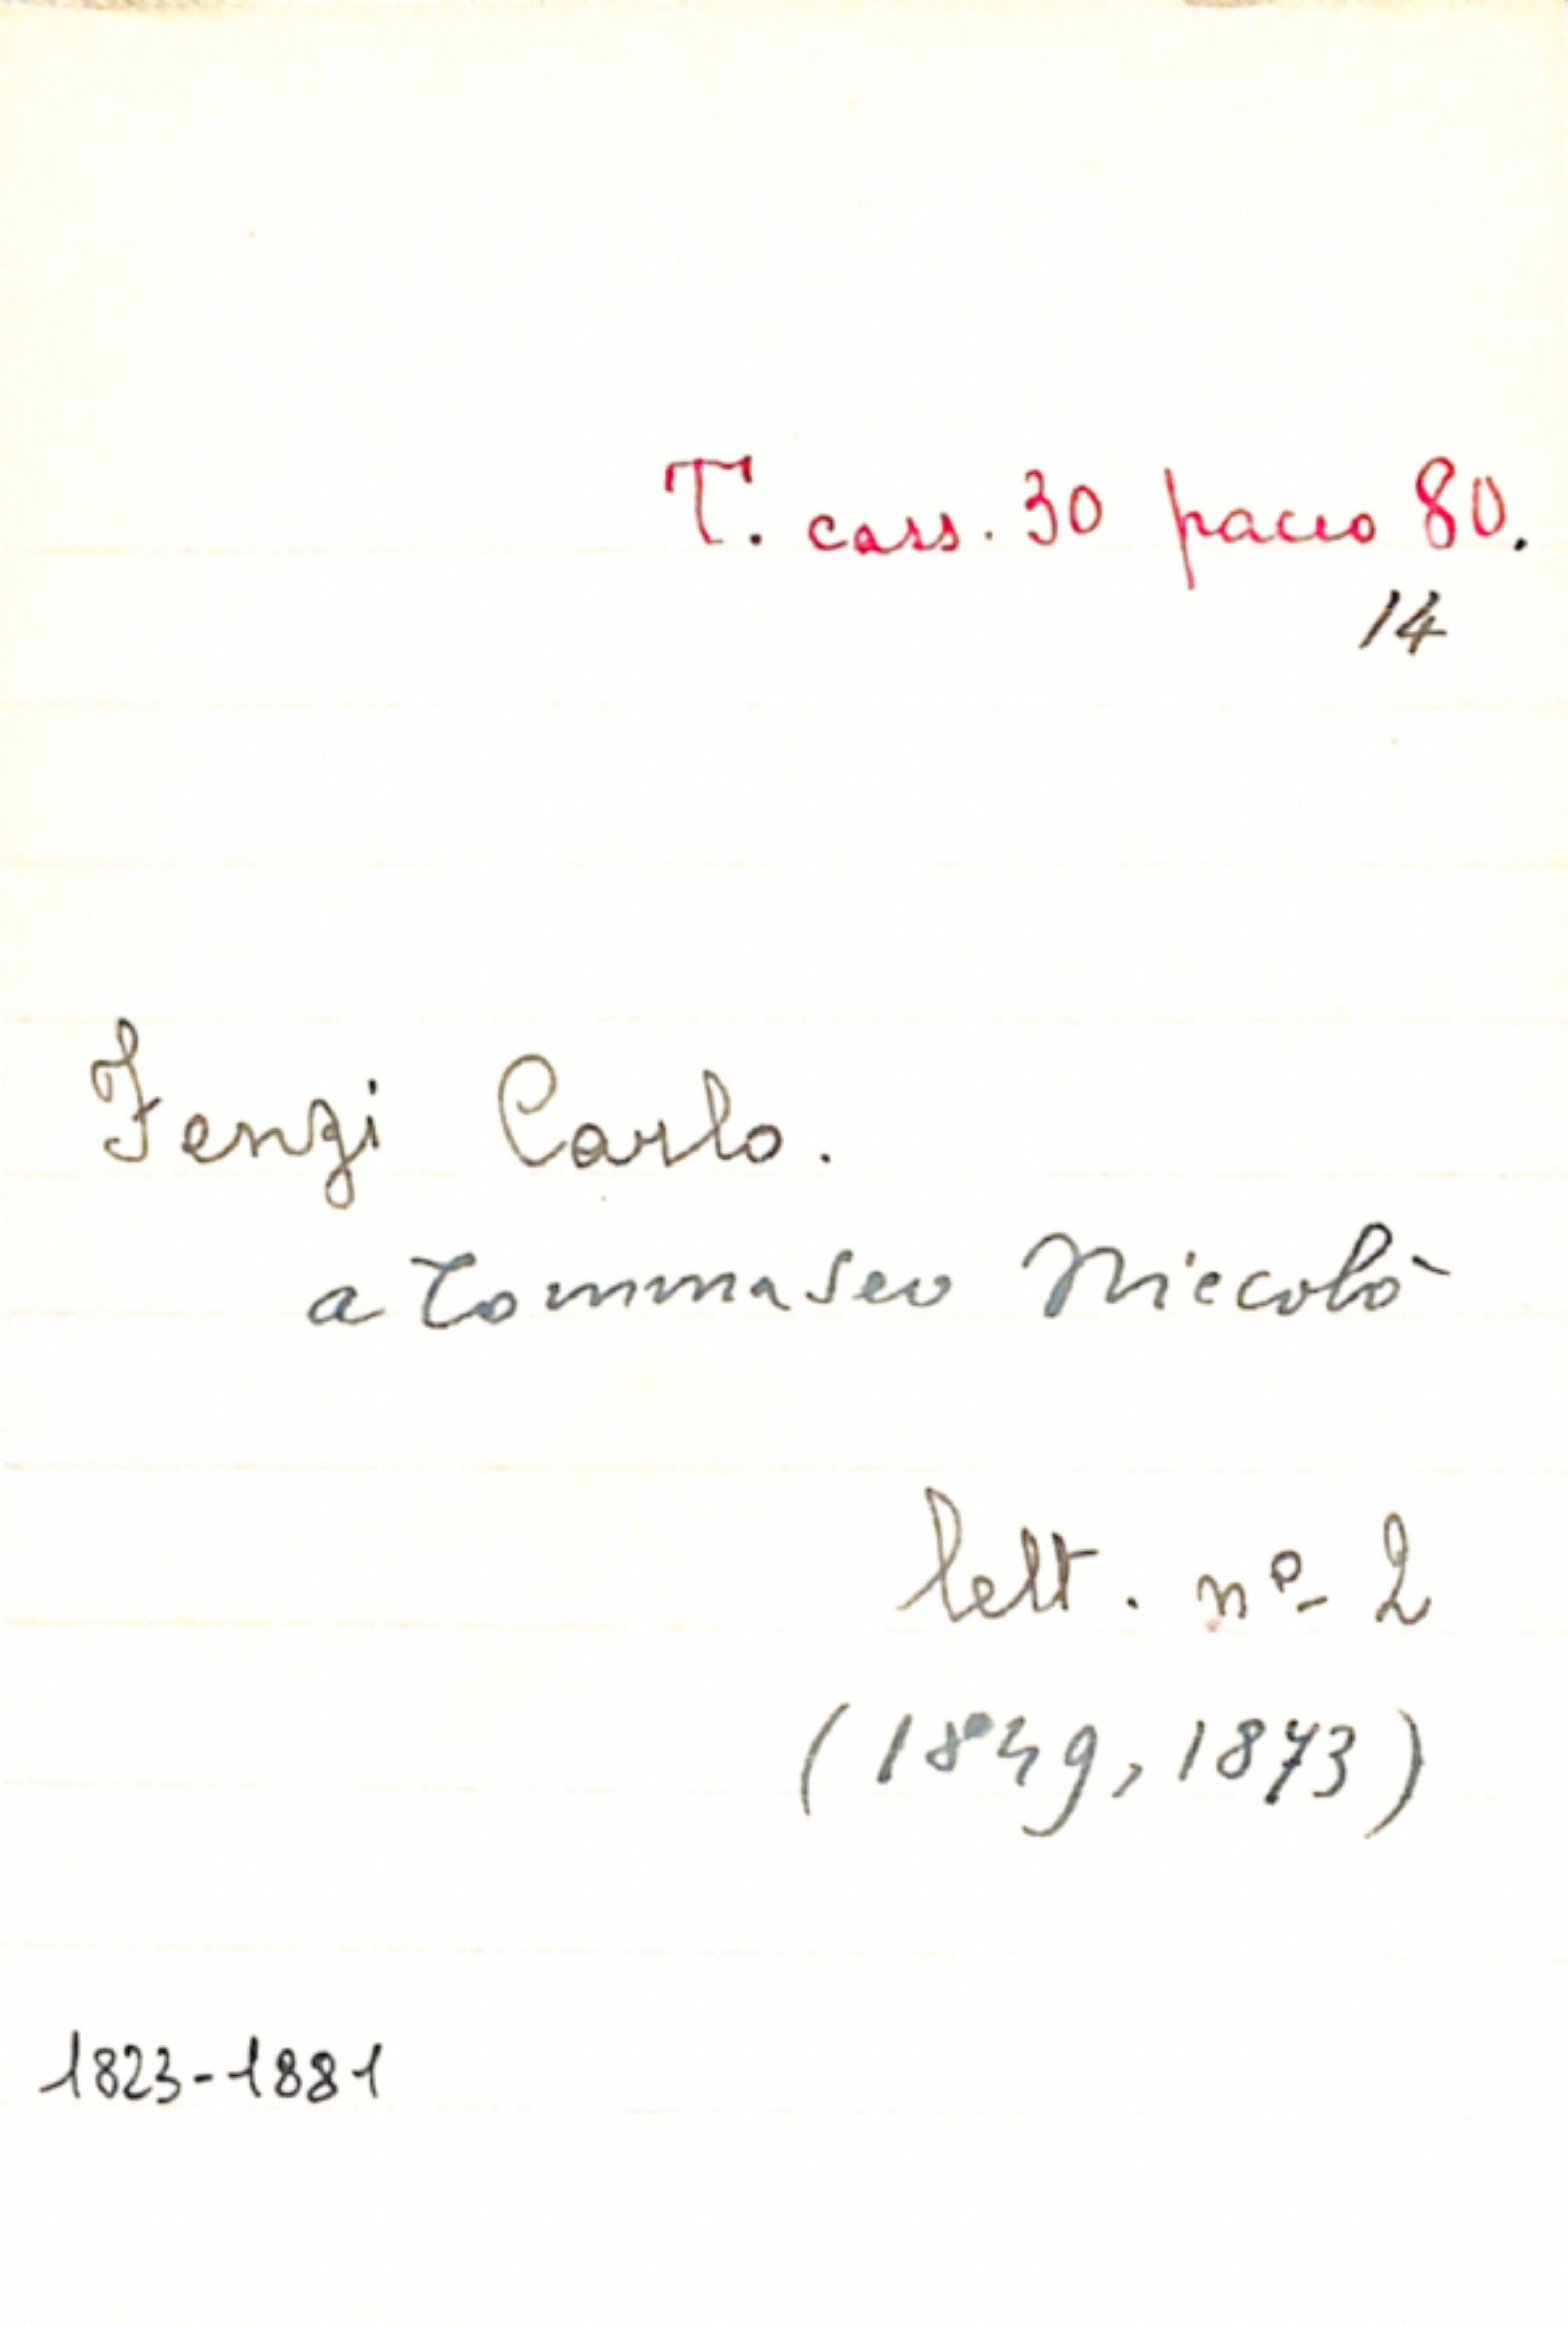 T. cass. 30 pacco 80.
14
Fenzi Carlo.
a Tommaseo Niccolò
lett. nº 2
(1849, 1873)
1823-1881